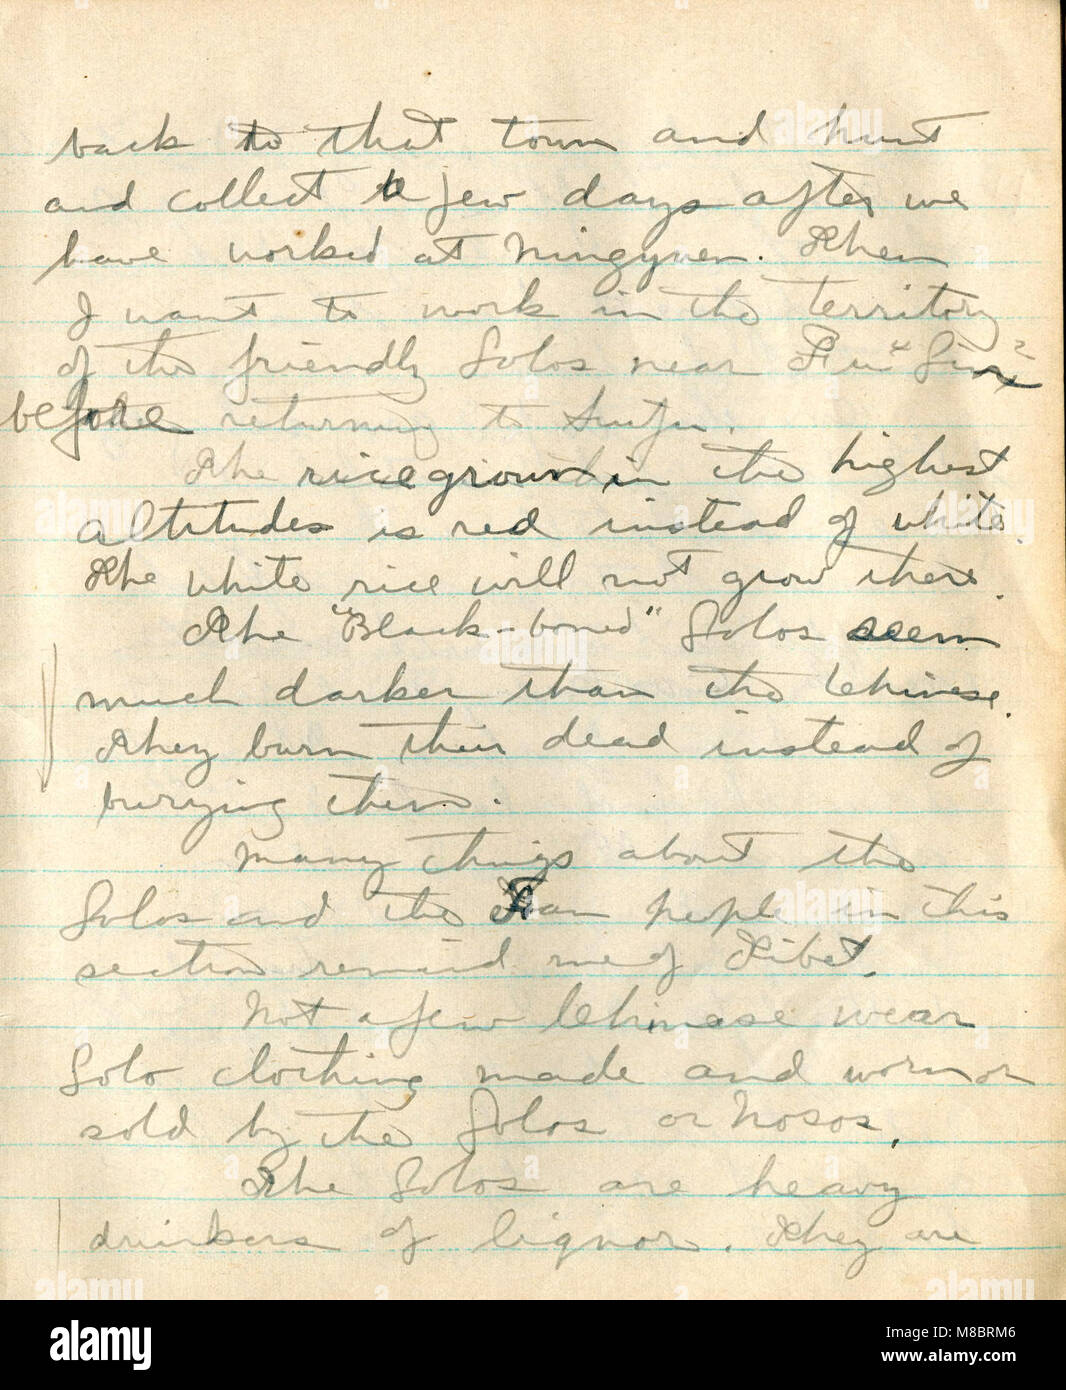 back to that town and hunt
and collect a few days after we
have worked at Ningyuen. Then
I want to work in the territory
of the friendly Lolos near Fu Lin ?
before returning to Suifu.
The rice grown in the highest
altitudes is red instead of white.
The white rice will not grow there.
The "Black-boned" Lolos seem
much darker than the Chinese.
They burn their dead instead of
burying them.
Many things about the
Lolos and the Fan people in this
section remind me of Tibet.
Not a few Chinese wear
Lolo clothing made and worn or
sold by the Lolos or Nosos.
The Lolos are heavy
drinkers of liquor. They are
alamy
Image ID: M8BRM6
www.alamy.com